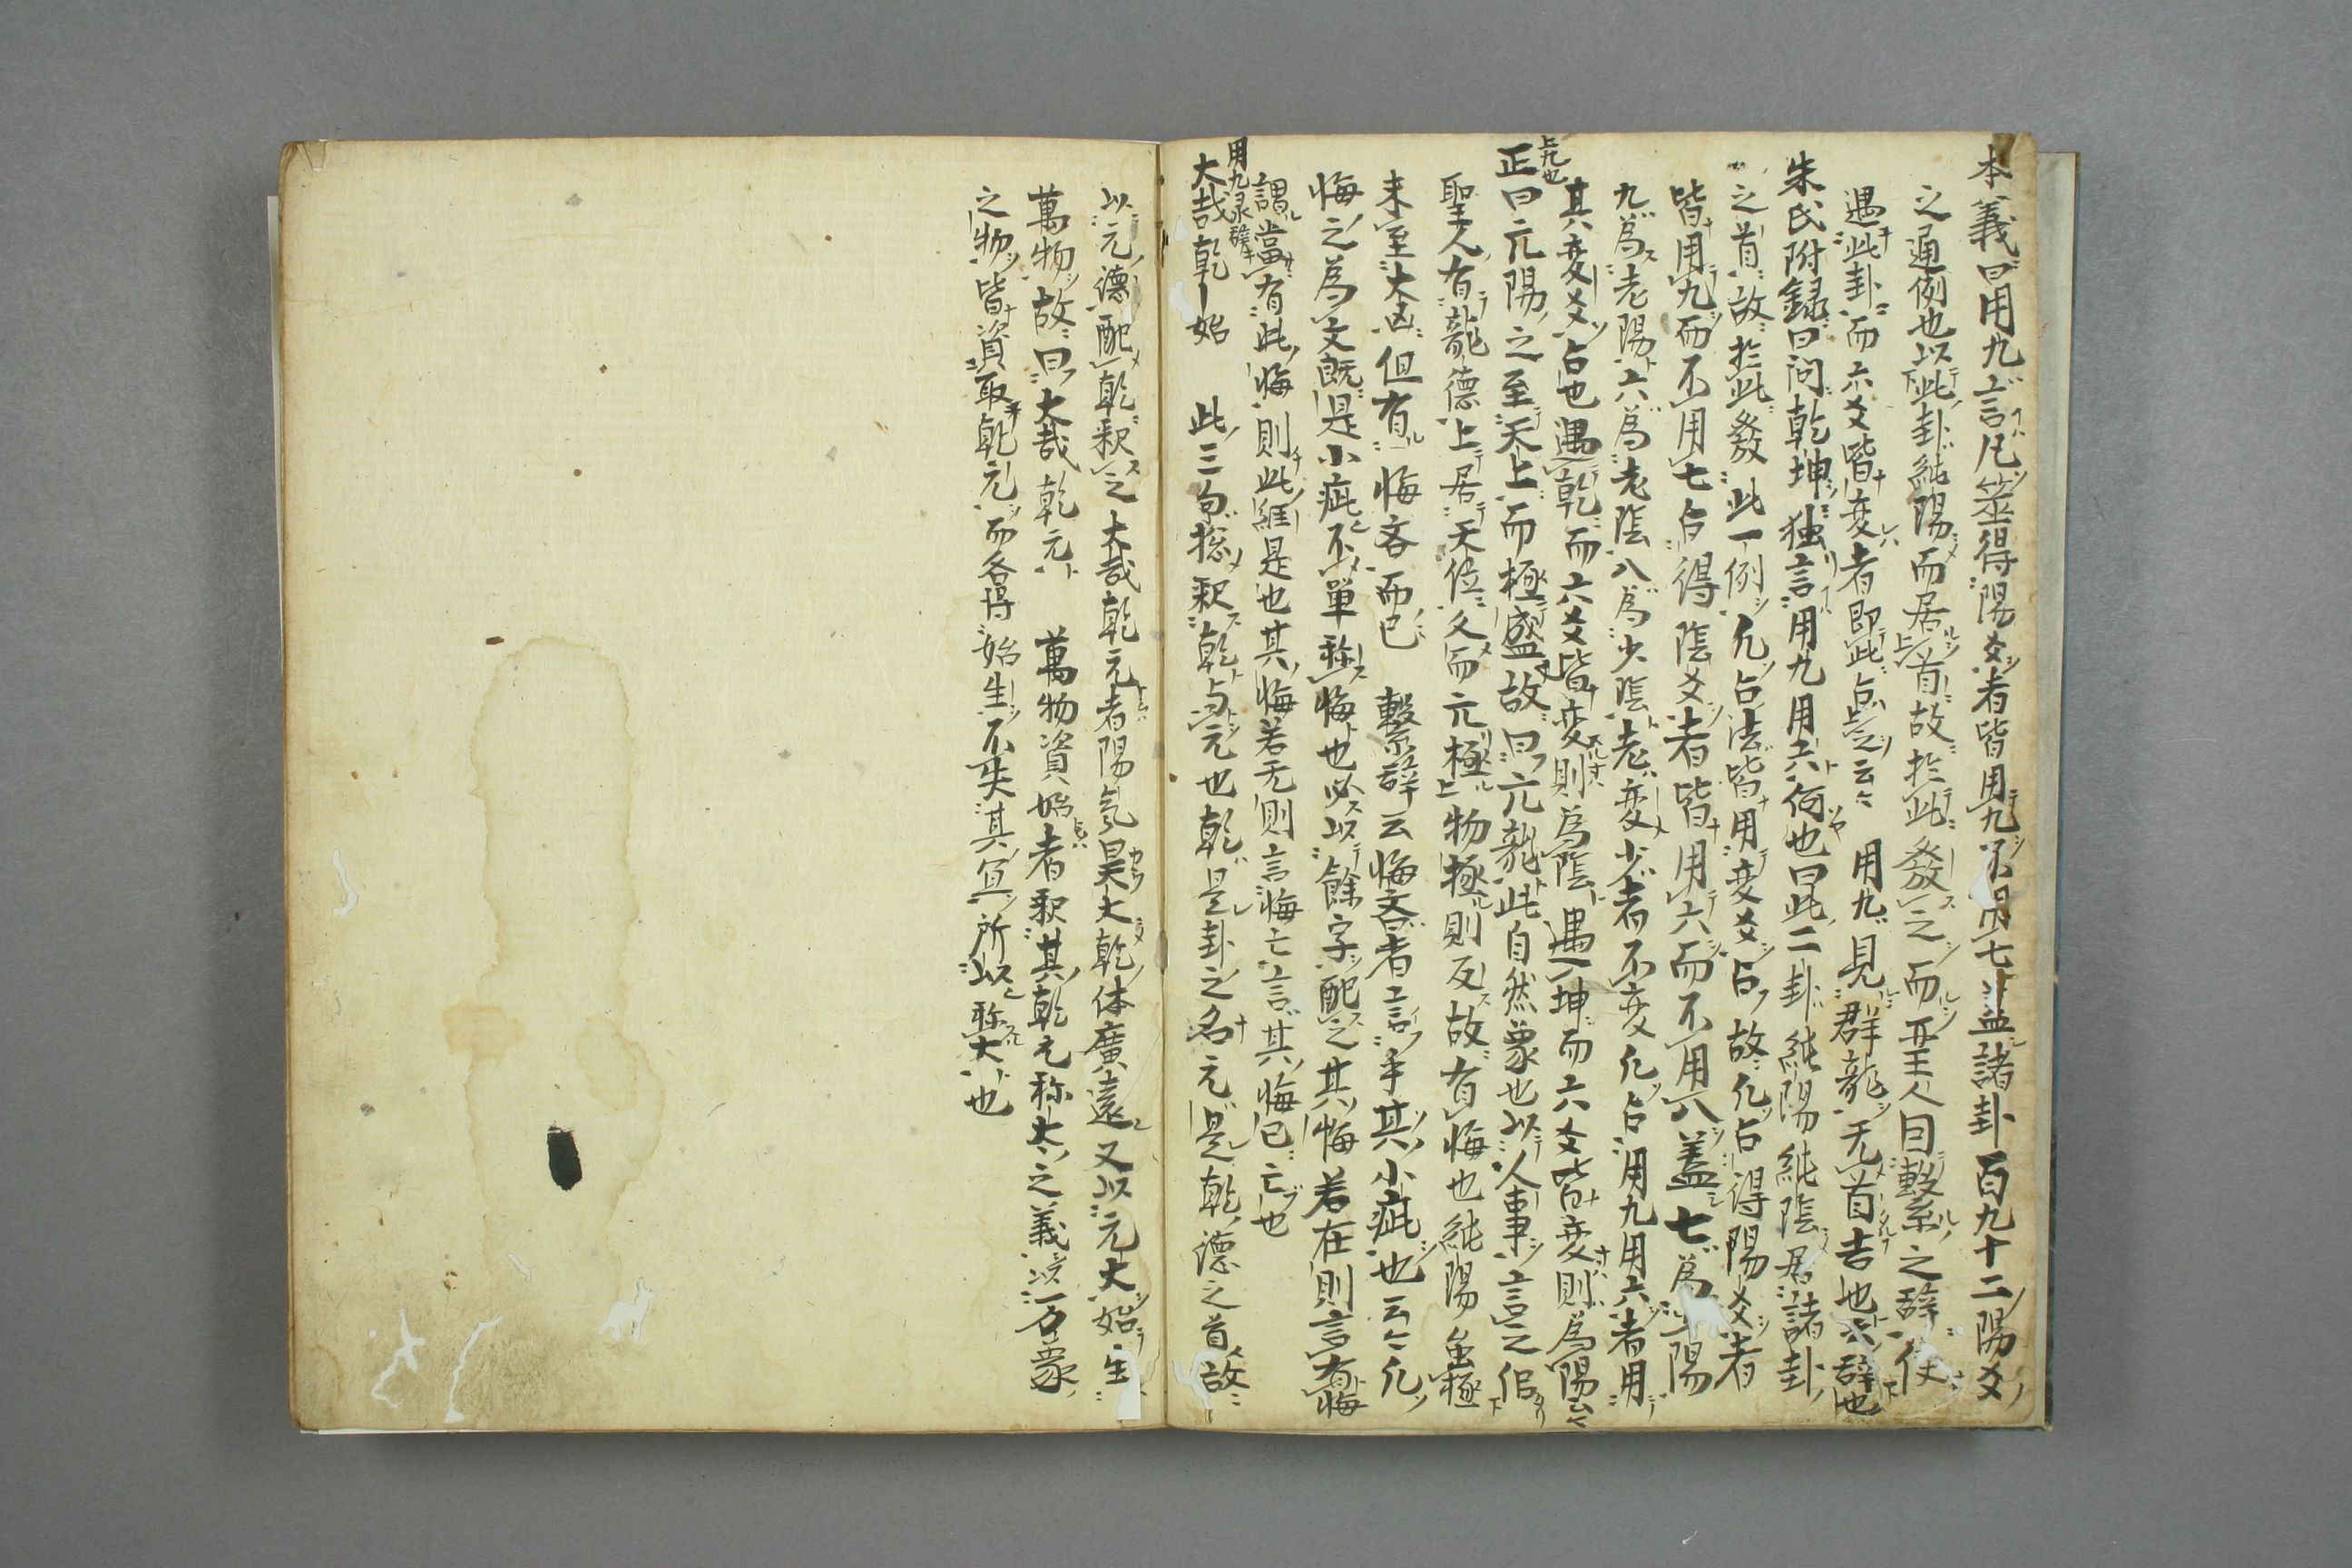 本義曰用九言凡筮得陽爻者皆用九不用七蓋諸卦百九十二陽爻
之通例也以此卦純陽而居首故於此發之而聖人因繫之辞使
遇此卦而六爻皆変者即此占之云々　用九見群龍无首吉地六辞也
朱氏附録曰問乾坤独言用九用六何也曰此二卦純陽純陰居諸卦
之首故於此發此一例凢占法皆用変爻占故凢占得陽爻者
皆用九而不用七占得陰爻者皆用六而不用八蓋七為少陽
九為老陽六為老陰八為少陰老変少者不変凢占用九用六者用
其変爻占也遇乾而六爻皆変則為陰遇坤而六爻皆変則為陽云々
上九也
正曰亢陽之至天上而極盛故曰亢龍此自然象也以人事言之
聖人有龍德上居天位久而亢極物極則反故有悔也純陽虽極
未至大凶但有悔吝而已　繫辞云悔吝者言乎其小疵也云々凢
悔之為文既是小疵不單称悔也必以餘字配之其悔若在則言有悔
謂當有此悔則此經是也其悔若无則言悔亡言其悔已亡也
用九彖辞
大哉乾ー始　此三句捴釈乾与元也乾是卦之名元是乾德之首故
以元德配乾釈之大哉乾元者陽氣昊大乾体廣遠又以元大始生
萬物故曰大哉乾元　萬物資始者釈其乾元称大之義以万象
之物皆資取乾元而各得始生不失其冝所以称大也